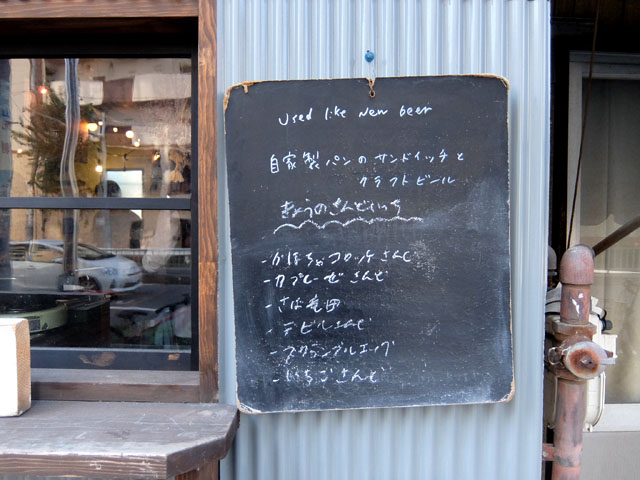 Used like New beer
自家製パンのサンドイッチと
クラフトビール
きょうのさんどいっち
-かぼちゃコロッケさんど
-カプレーゼさんど
-さば竜田
-デビルさんど
-スクランブルエッグ
-いちごさんど